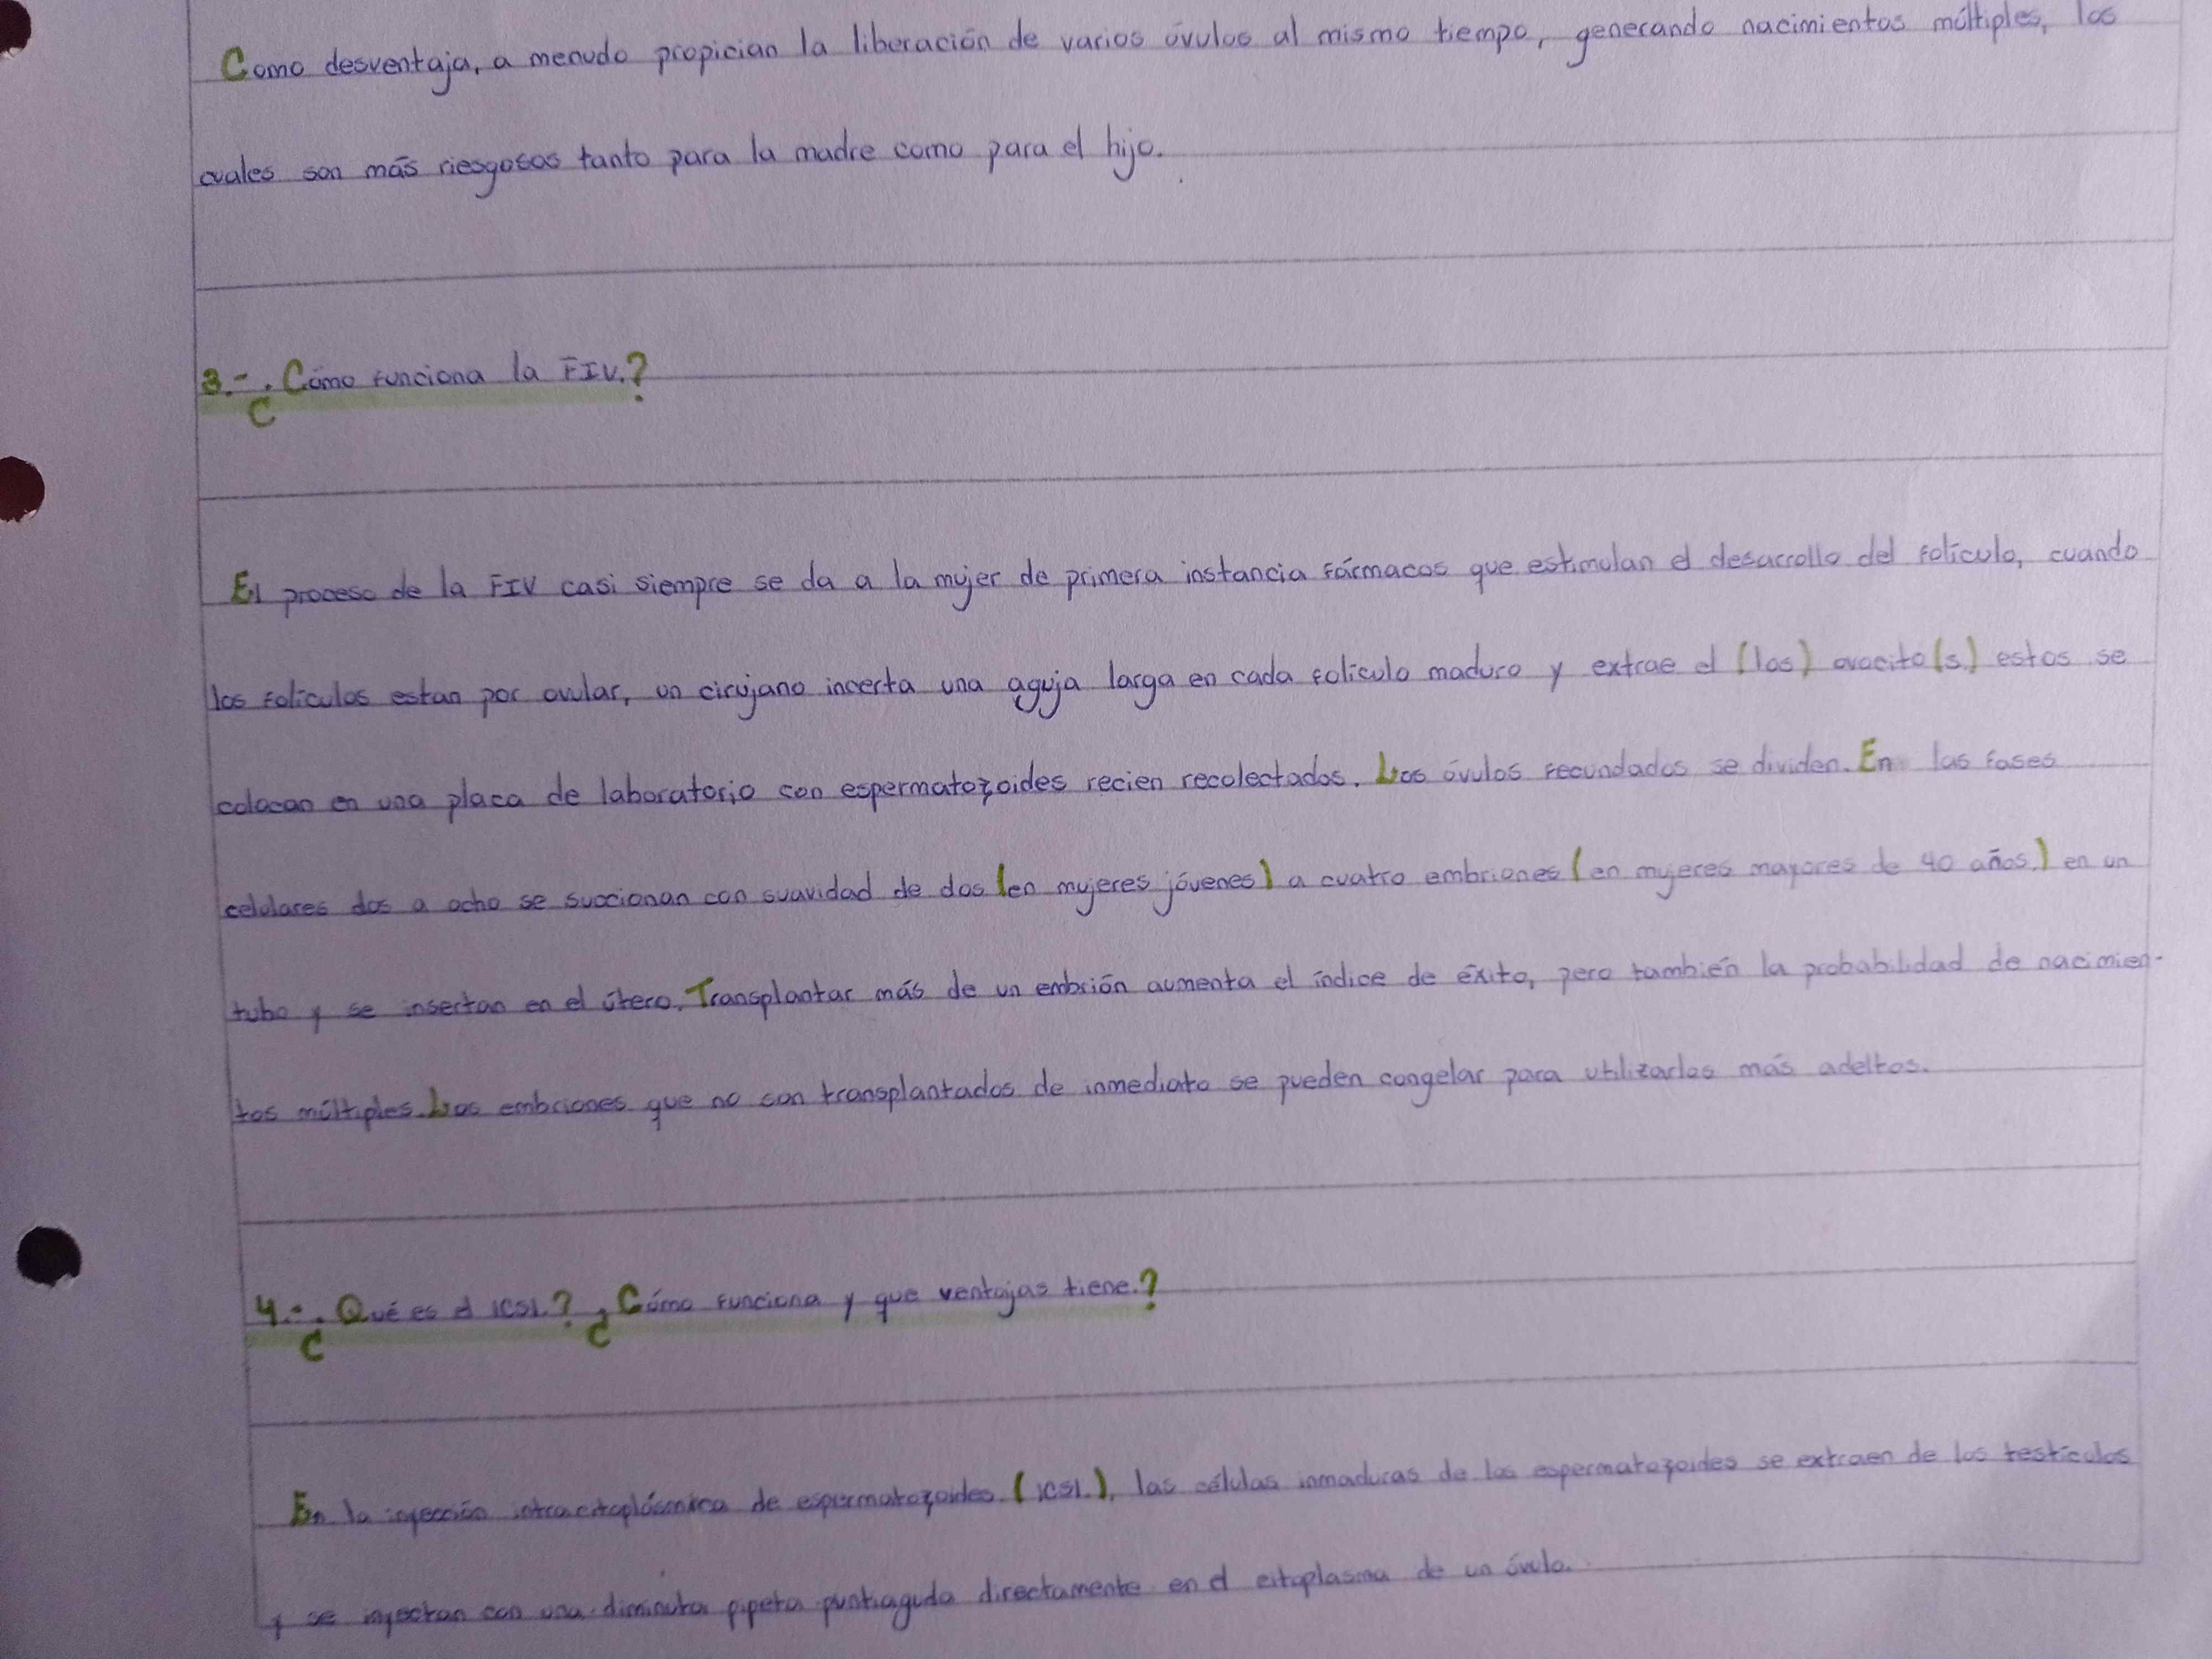 Como desventaja, a menudo propician la liberación de varios óvulos al mismo tiempo, generando nacimientos múltiples, los
cuales son más riesgosos tanto para la madre como para el hijo.
3.- ¿Cómo funciona la FIV.?
El proceso de la FIV casi siempre se da a la mujer de primera instancia fármacos que estimulan el desarrollo del folículo, cuando
los folículos estan por ovular, un cirujano incerta una aguja larga en cada folículo maduro y extrae el (los) ovocito(s.) estos se
colocan en una placa de laboratorio con espermatozoides recien recolectados. Los óvulos fecundados se dividen. En las fases
celulares dos a ocho se succionan con suavidad de dos (en mujeres jóvenes) a cuatro embriones (en mujeres mayores de 40 años.) en un
tubo y se insertan en el útero. Transplantar más de un embrión aumenta el índice de éxito, pero también la probabilidad de nacimien-
tos múltiples. Los embriones que no son transplantados de inmediato se pueden congelar para utilizarlos más adeltos.
4.- ¿Qué es el ICSI.? ¿Cómo funciona y que ventajas tiene.?
En la inyección intracitoplásmica de espermatozoides. (ICSI.), las células inmaduras de los espermatozoides se extraen de los testículos
y se inyectan con una diminuta pipeta puntiaguda directamente en el citoplasma de un óvulo.